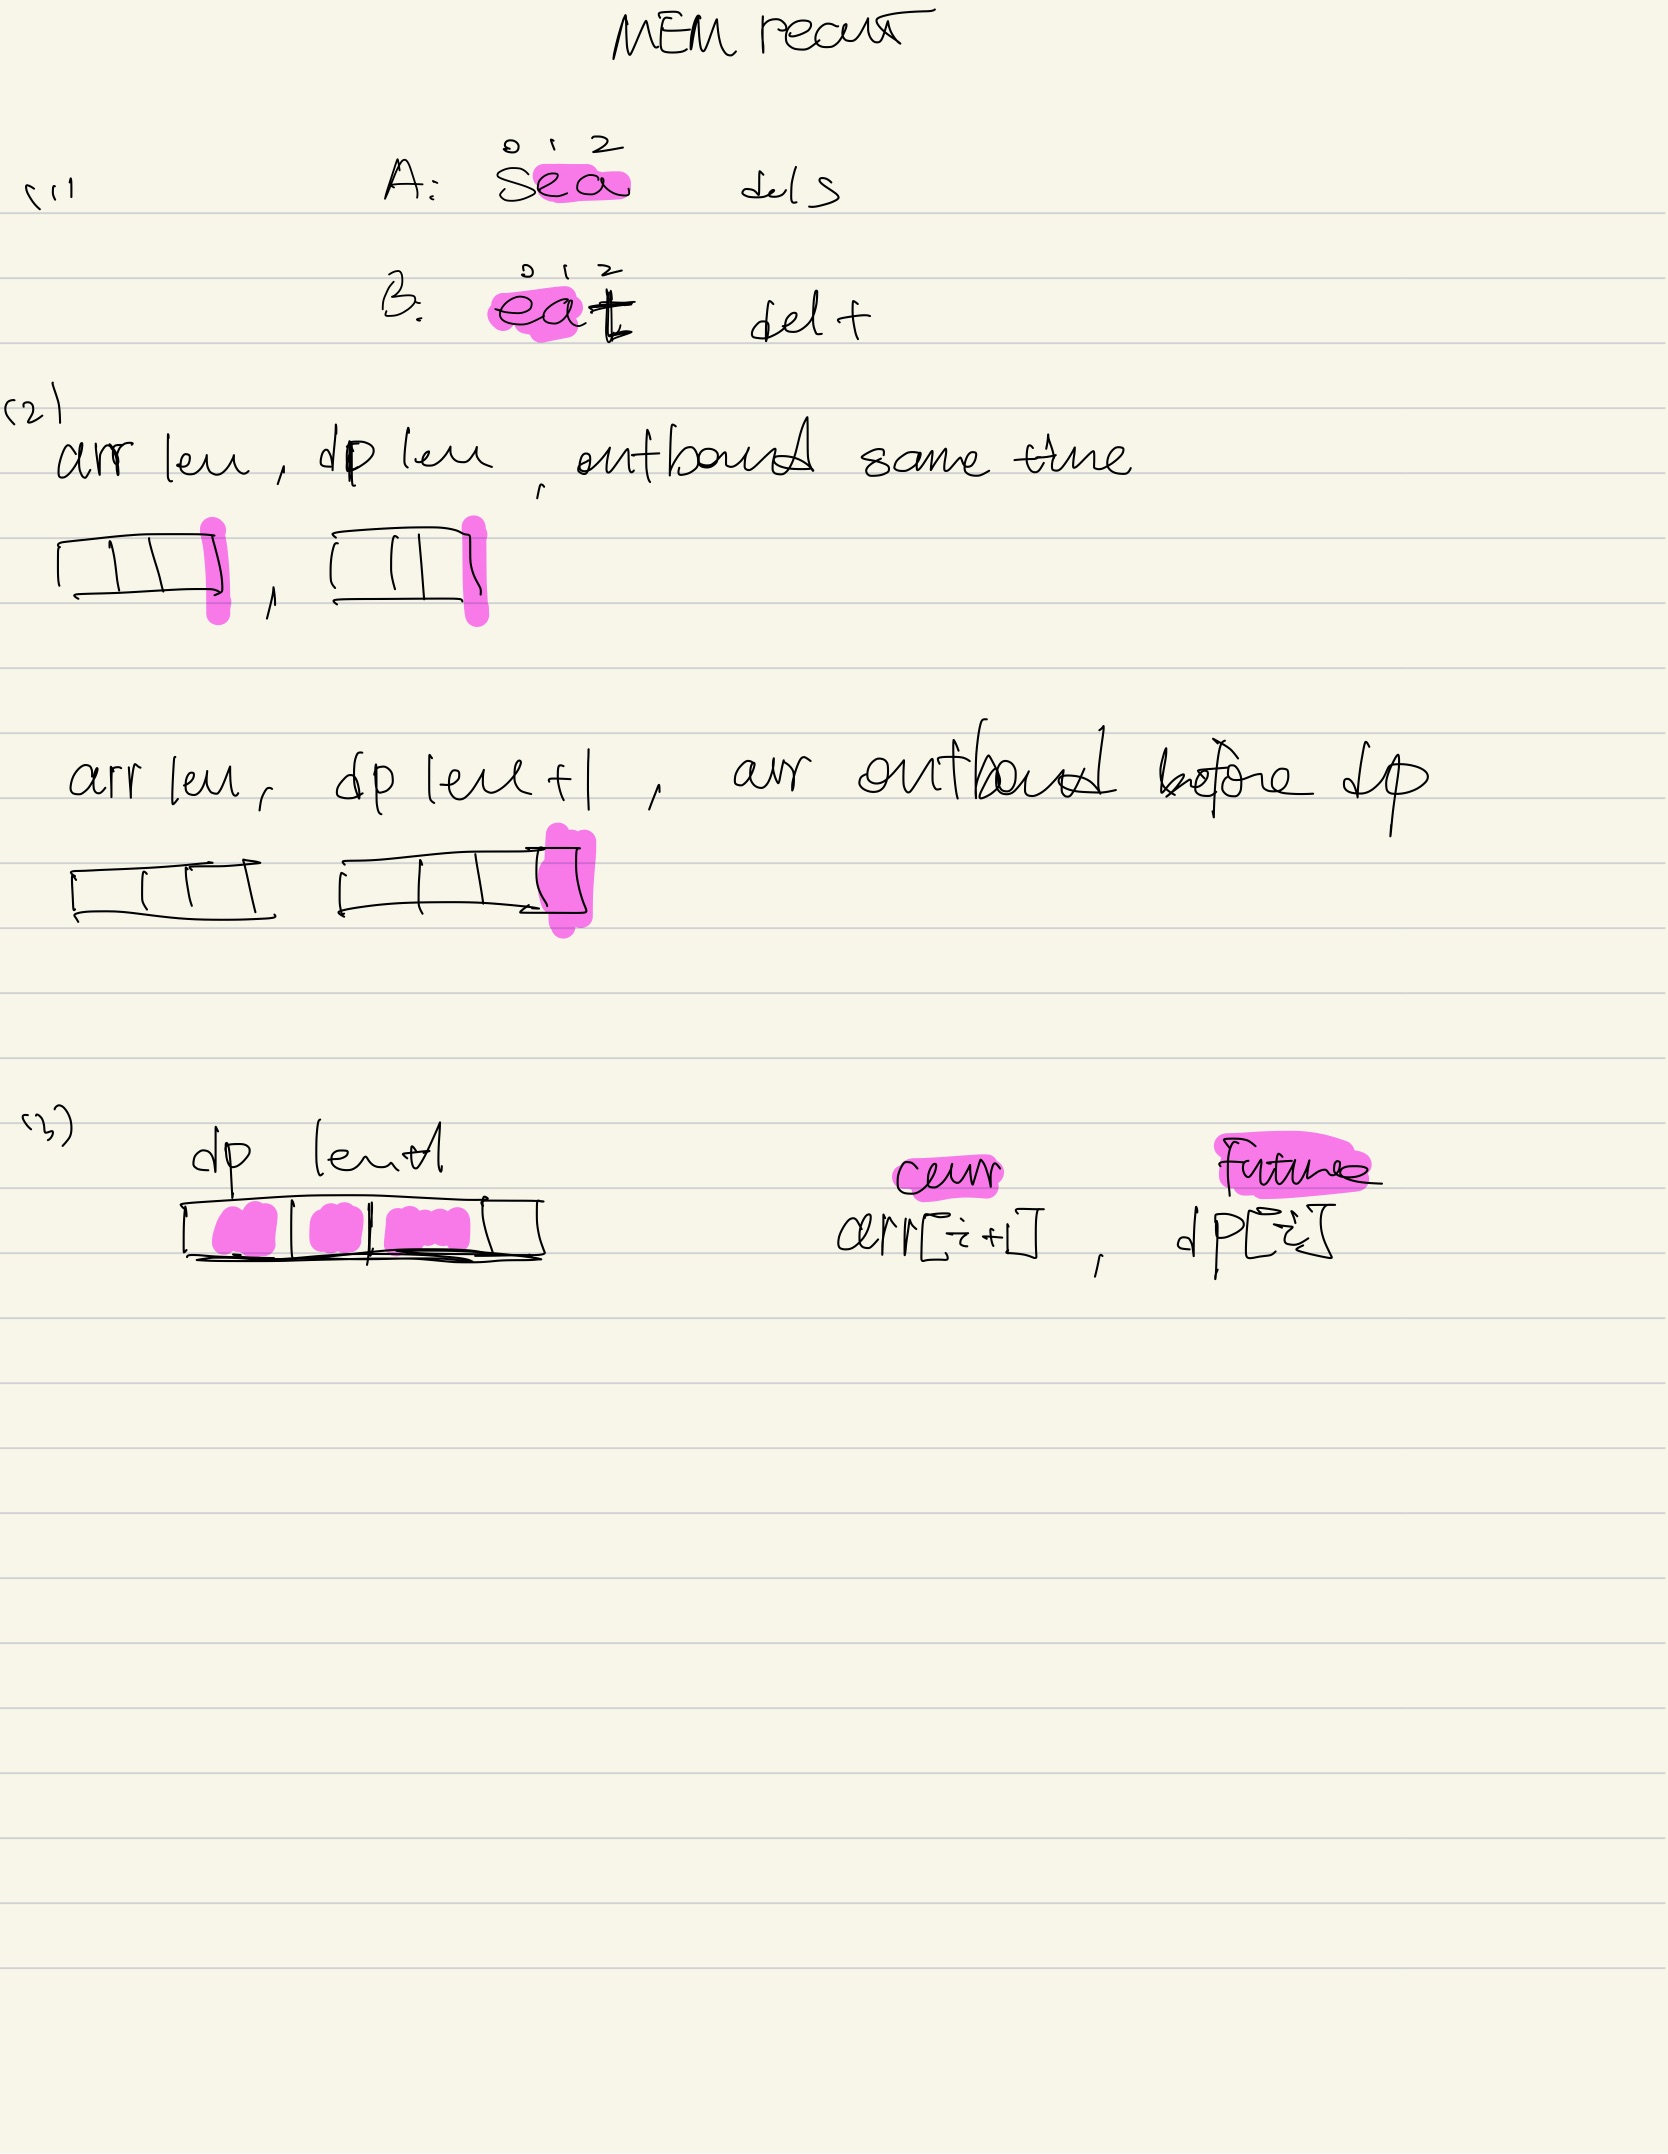 MEM recur
(1)
0 1 2
A: sea del s
0 1 2
B: eat del t
(2)
arr len, dp len, outbound same time
,
arr len, dp len+1, arr outbound before dp
(3)
dp len+1
curr future
arr[i+1], dp[i]